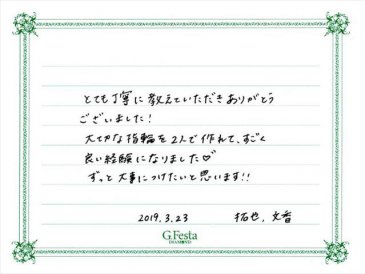 とても丁寧に教えていただきありがとう
ございました!
大切な指輪を2人で作れて、すごく
良い経験になりました♡
ずっと大事につけたいと思います!!
2019.3.23 拓也、文香
G.Festa
DIAMOND